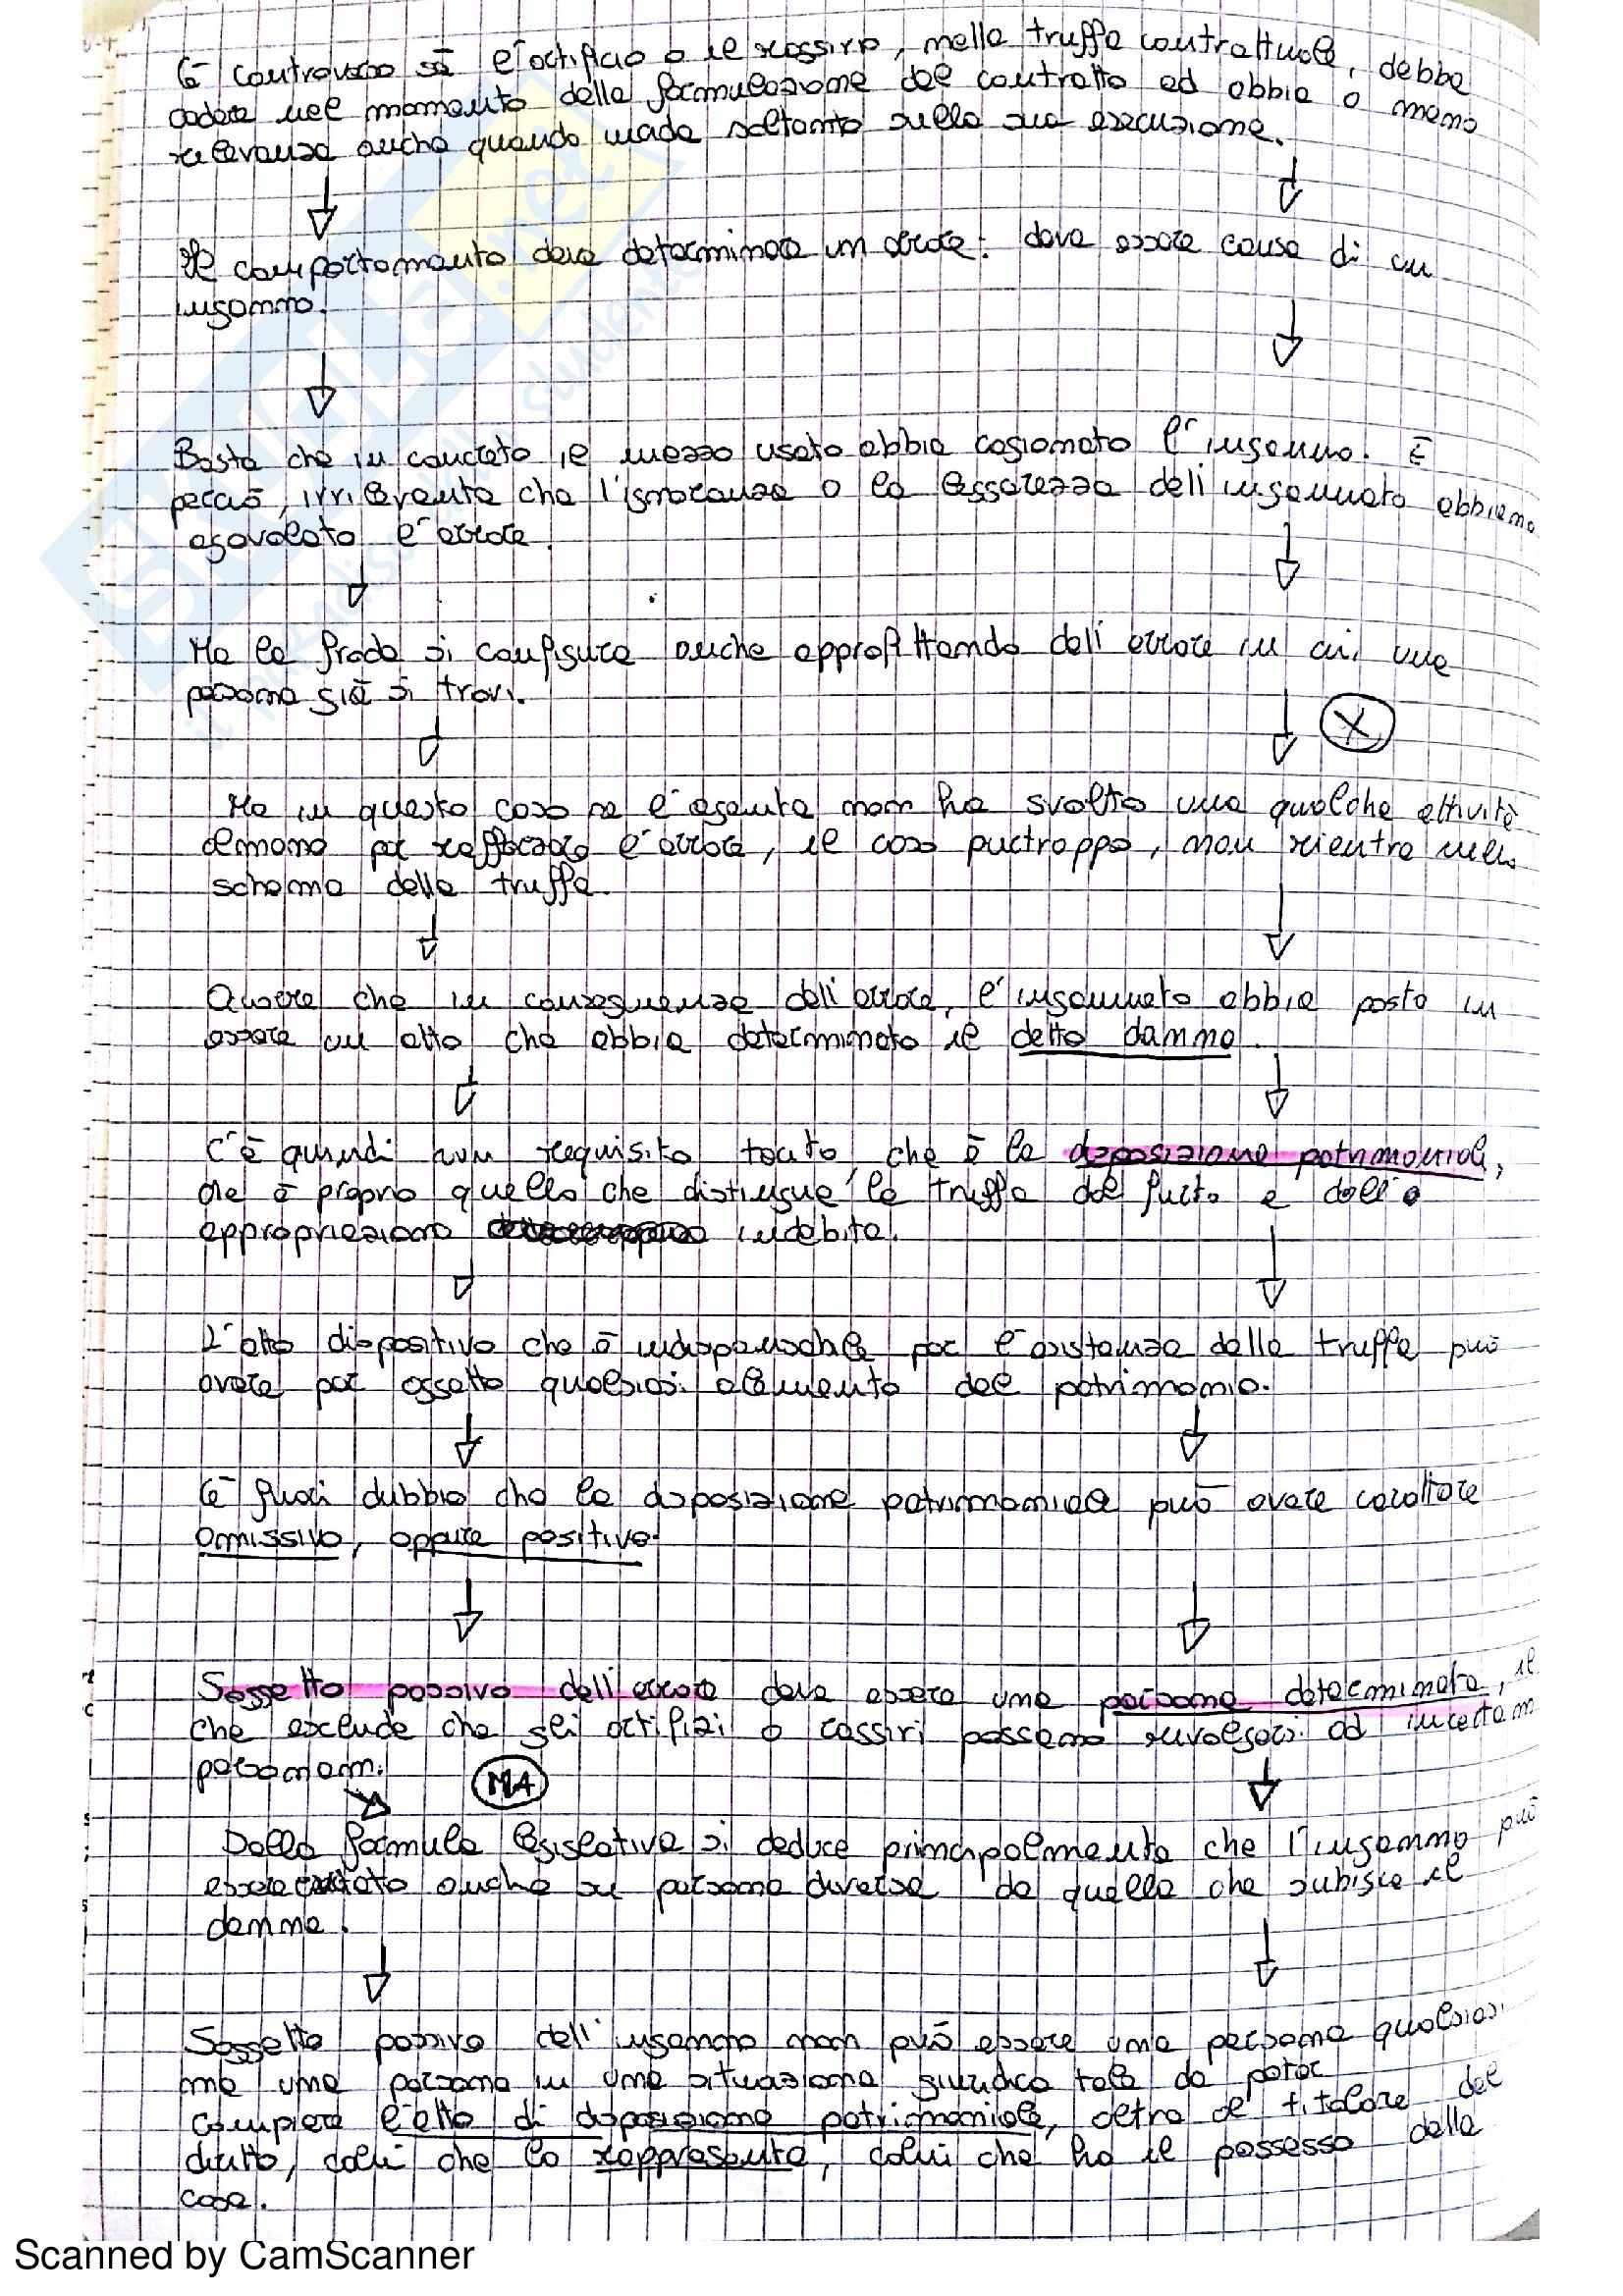 È controverso se l'artificio o il raggiro, nella truffa contrattuale, debba
cadere nel momento della formulazione del contratto ed abbia o meno
rilevanza anche quando cada soltanto sulla sua esecuzione.
Il comportamento deve determinare un errore: deve essere causa di un
inganno.
Basta che in concreto il mezzo usato abbia cagionato l'inganno. È
perciò, irrilevante che l'ignoranza o la leggerezza dell'ingannato abbiano
agevolato l'errore.
Ma la frode si configura anche approfittando dell'errore in cui una
persona già si trovi.
X
Ma in questo caso se l'agente non ha svolto una qualche attività
almeno per rafforzare l'errore, il caso purtroppo, non rientra nello
schema della truffa.
Avere che in conseguenza dell'errore, l'ingannato abbia posto in
essere un atto che abbia determinato il detto danno.
C'è quindi un requisito tacito, che è la disposizione patrimoniale,
che è proprio quello che distingue la truffa dal furto e dall'
appropriazione indebita.
L'atto dispositivo che è indispensabile per l'esistenza della truffa può
avere per oggetto qualsiasi elemento del patrimonio.
È fuori dubbio che la disposizione patrimoniale può avere carattere
omissivo, oppure positivo.
Soggetto passivo dell'errore deve essere una persona determinata, il
che esclude che gli artifizi o raggiri possano rivolgersi ad incertam
personam.
MA
Dalla formula legislativa si deduce principalmente che l'inganno può
essere esercitato anche su persona diversa da quella che subisce il
danno.
Soggetto passivo dell'inganno non può essere una persona qualsiasi
ma una persona in una situazione giuridica tale da poter
compiere l'atto di disposizione patrimoniale, oltre al titolare del
diritto, colui che lo rappresenta, colui che ha il possesso della
cosa.
Scanned by CamScanner